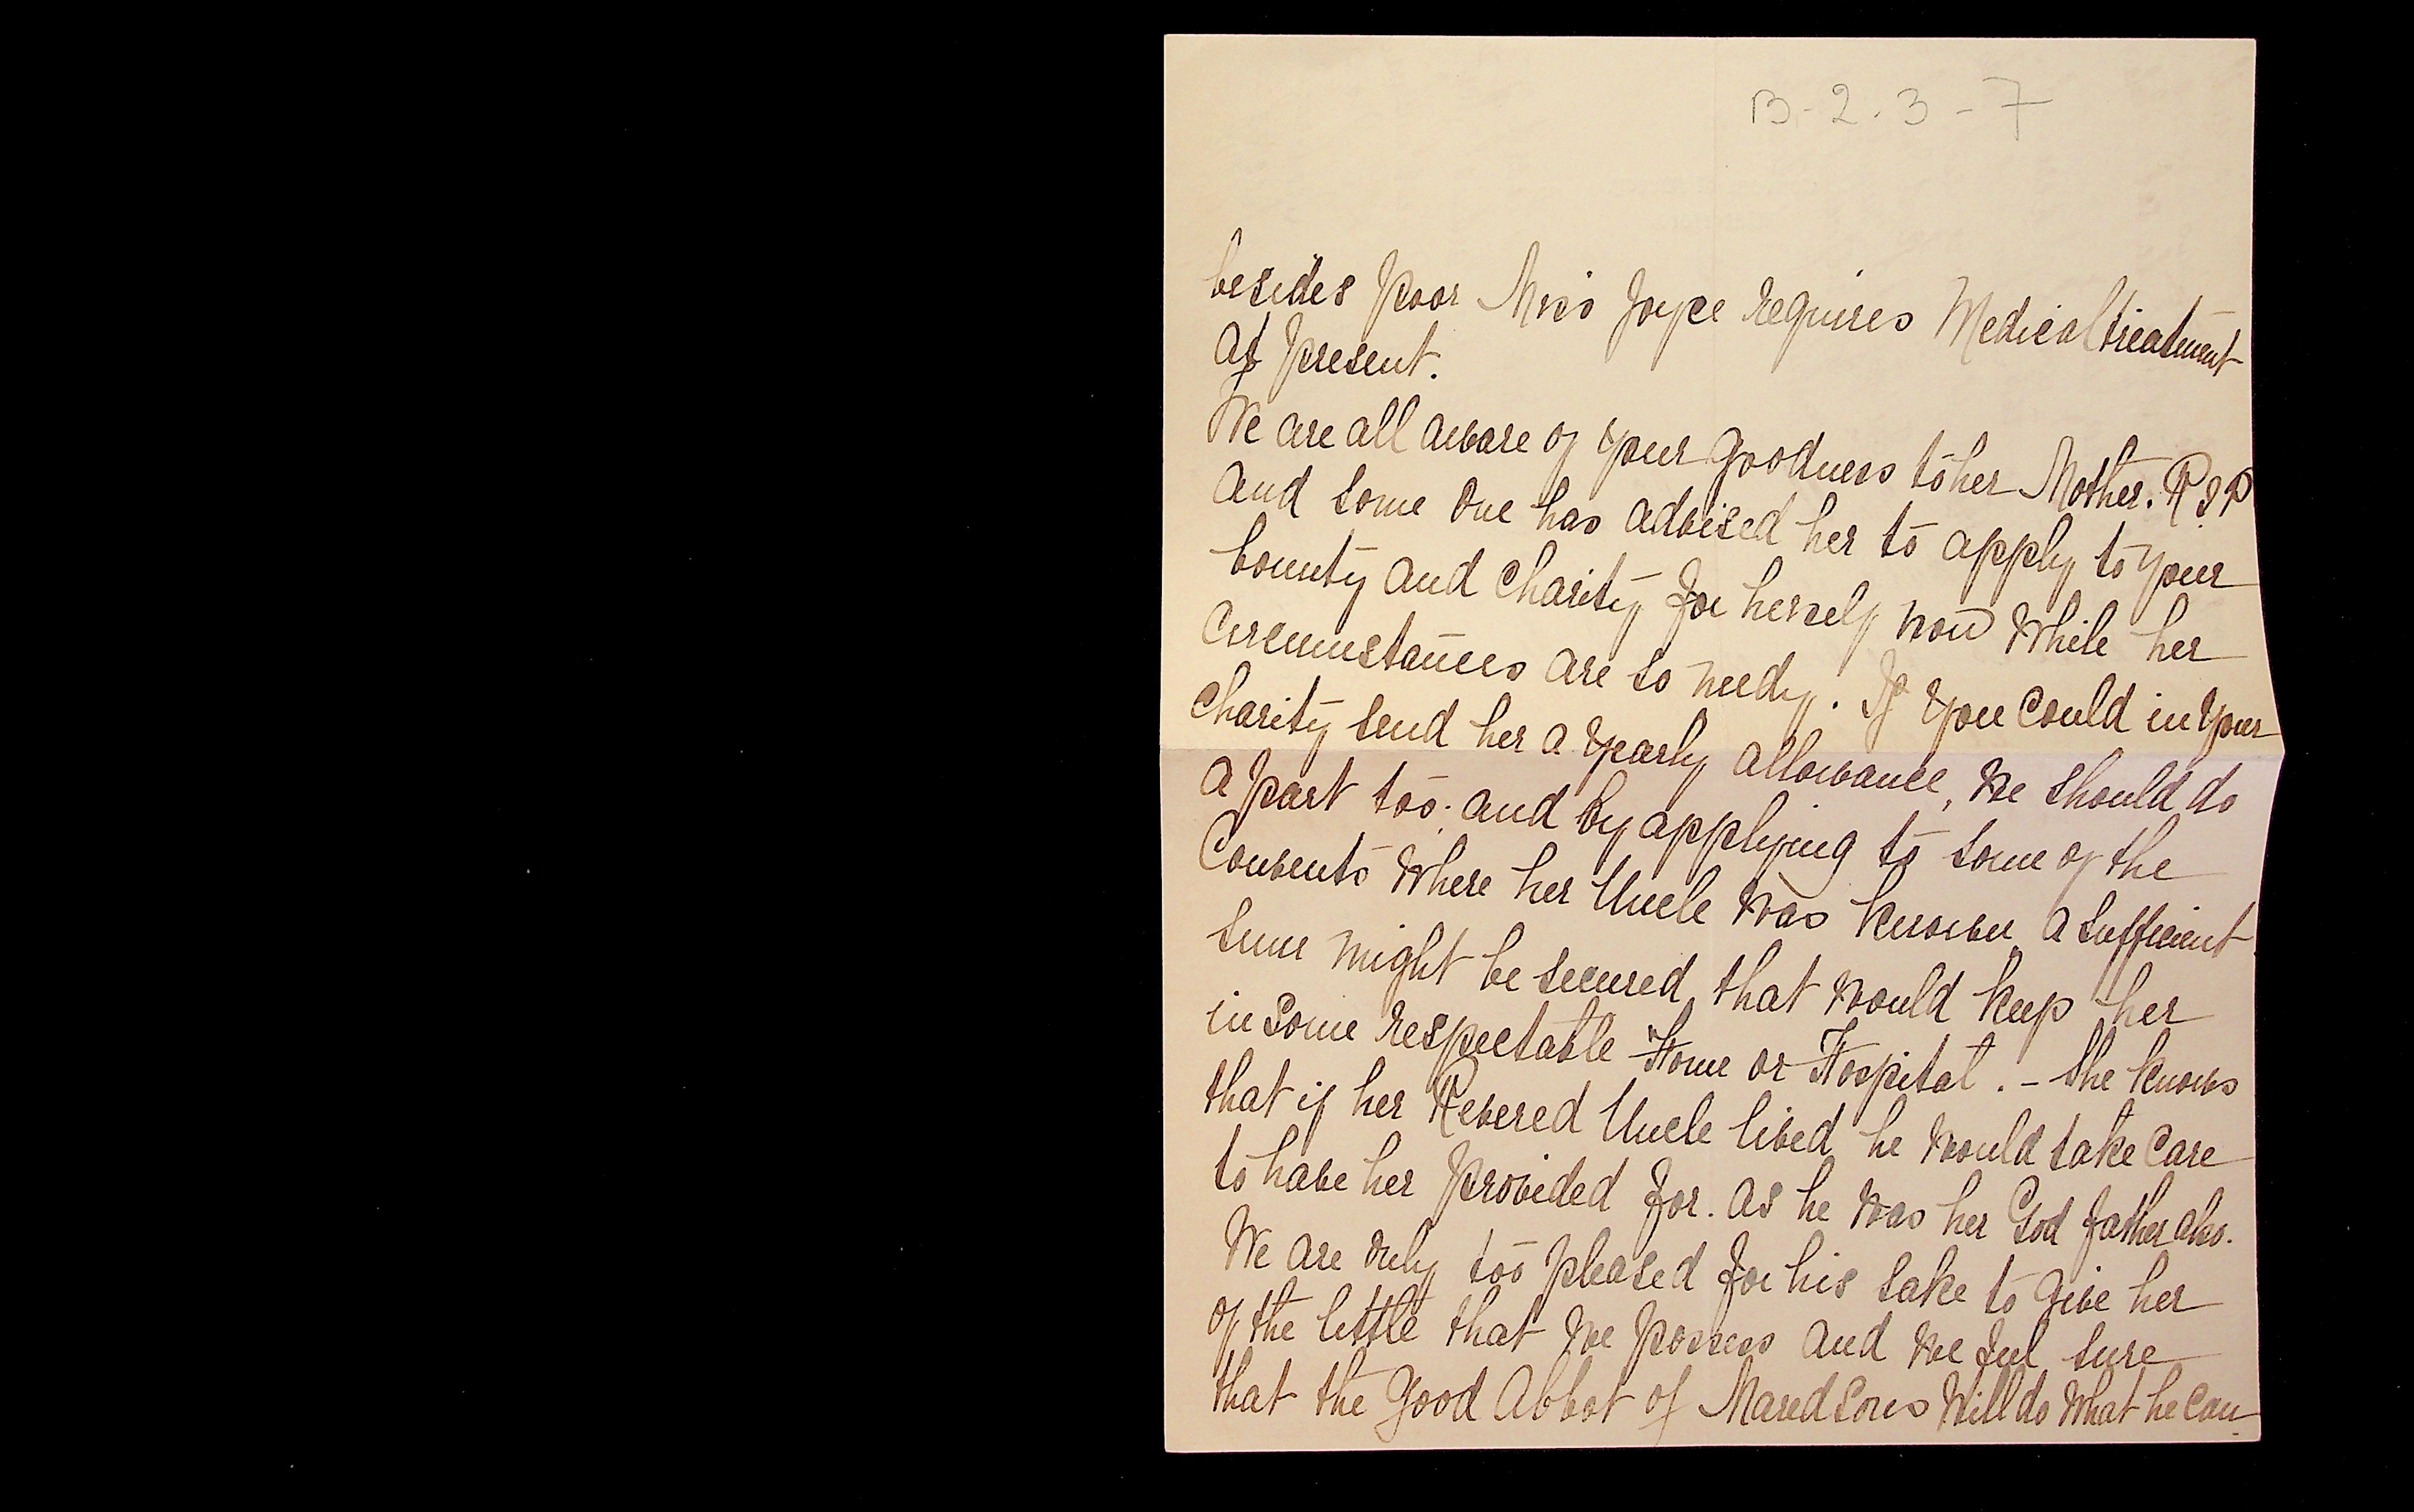 B-2.3-7
besides poor Miss Joyce requires Medical treatment
at present.
We are all aware of your goodness to her Mother. R I P
and some one has advised her to apply to your
bounty and charity for herself now while her
circumstances are so needy. If you could in your
charity send her a yearly allowance, we should do
a part too; and by applying to some of the
Convents where her Uncle was known a sufficient
sum might be secured that would keep her
in some respectable Home or Hospital. - She knows
that if her Revered Uncle lived he would take care
to have her provided for. as he was her God father also.
We are only too pleased for his sake to give her
of the little that we possess and we feel sure
that the good Abbot of Maredsous will do what he can